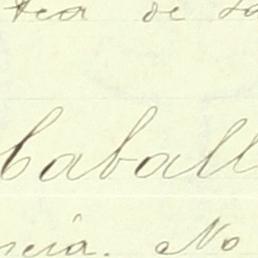 tea de La
Caball
ncia. No